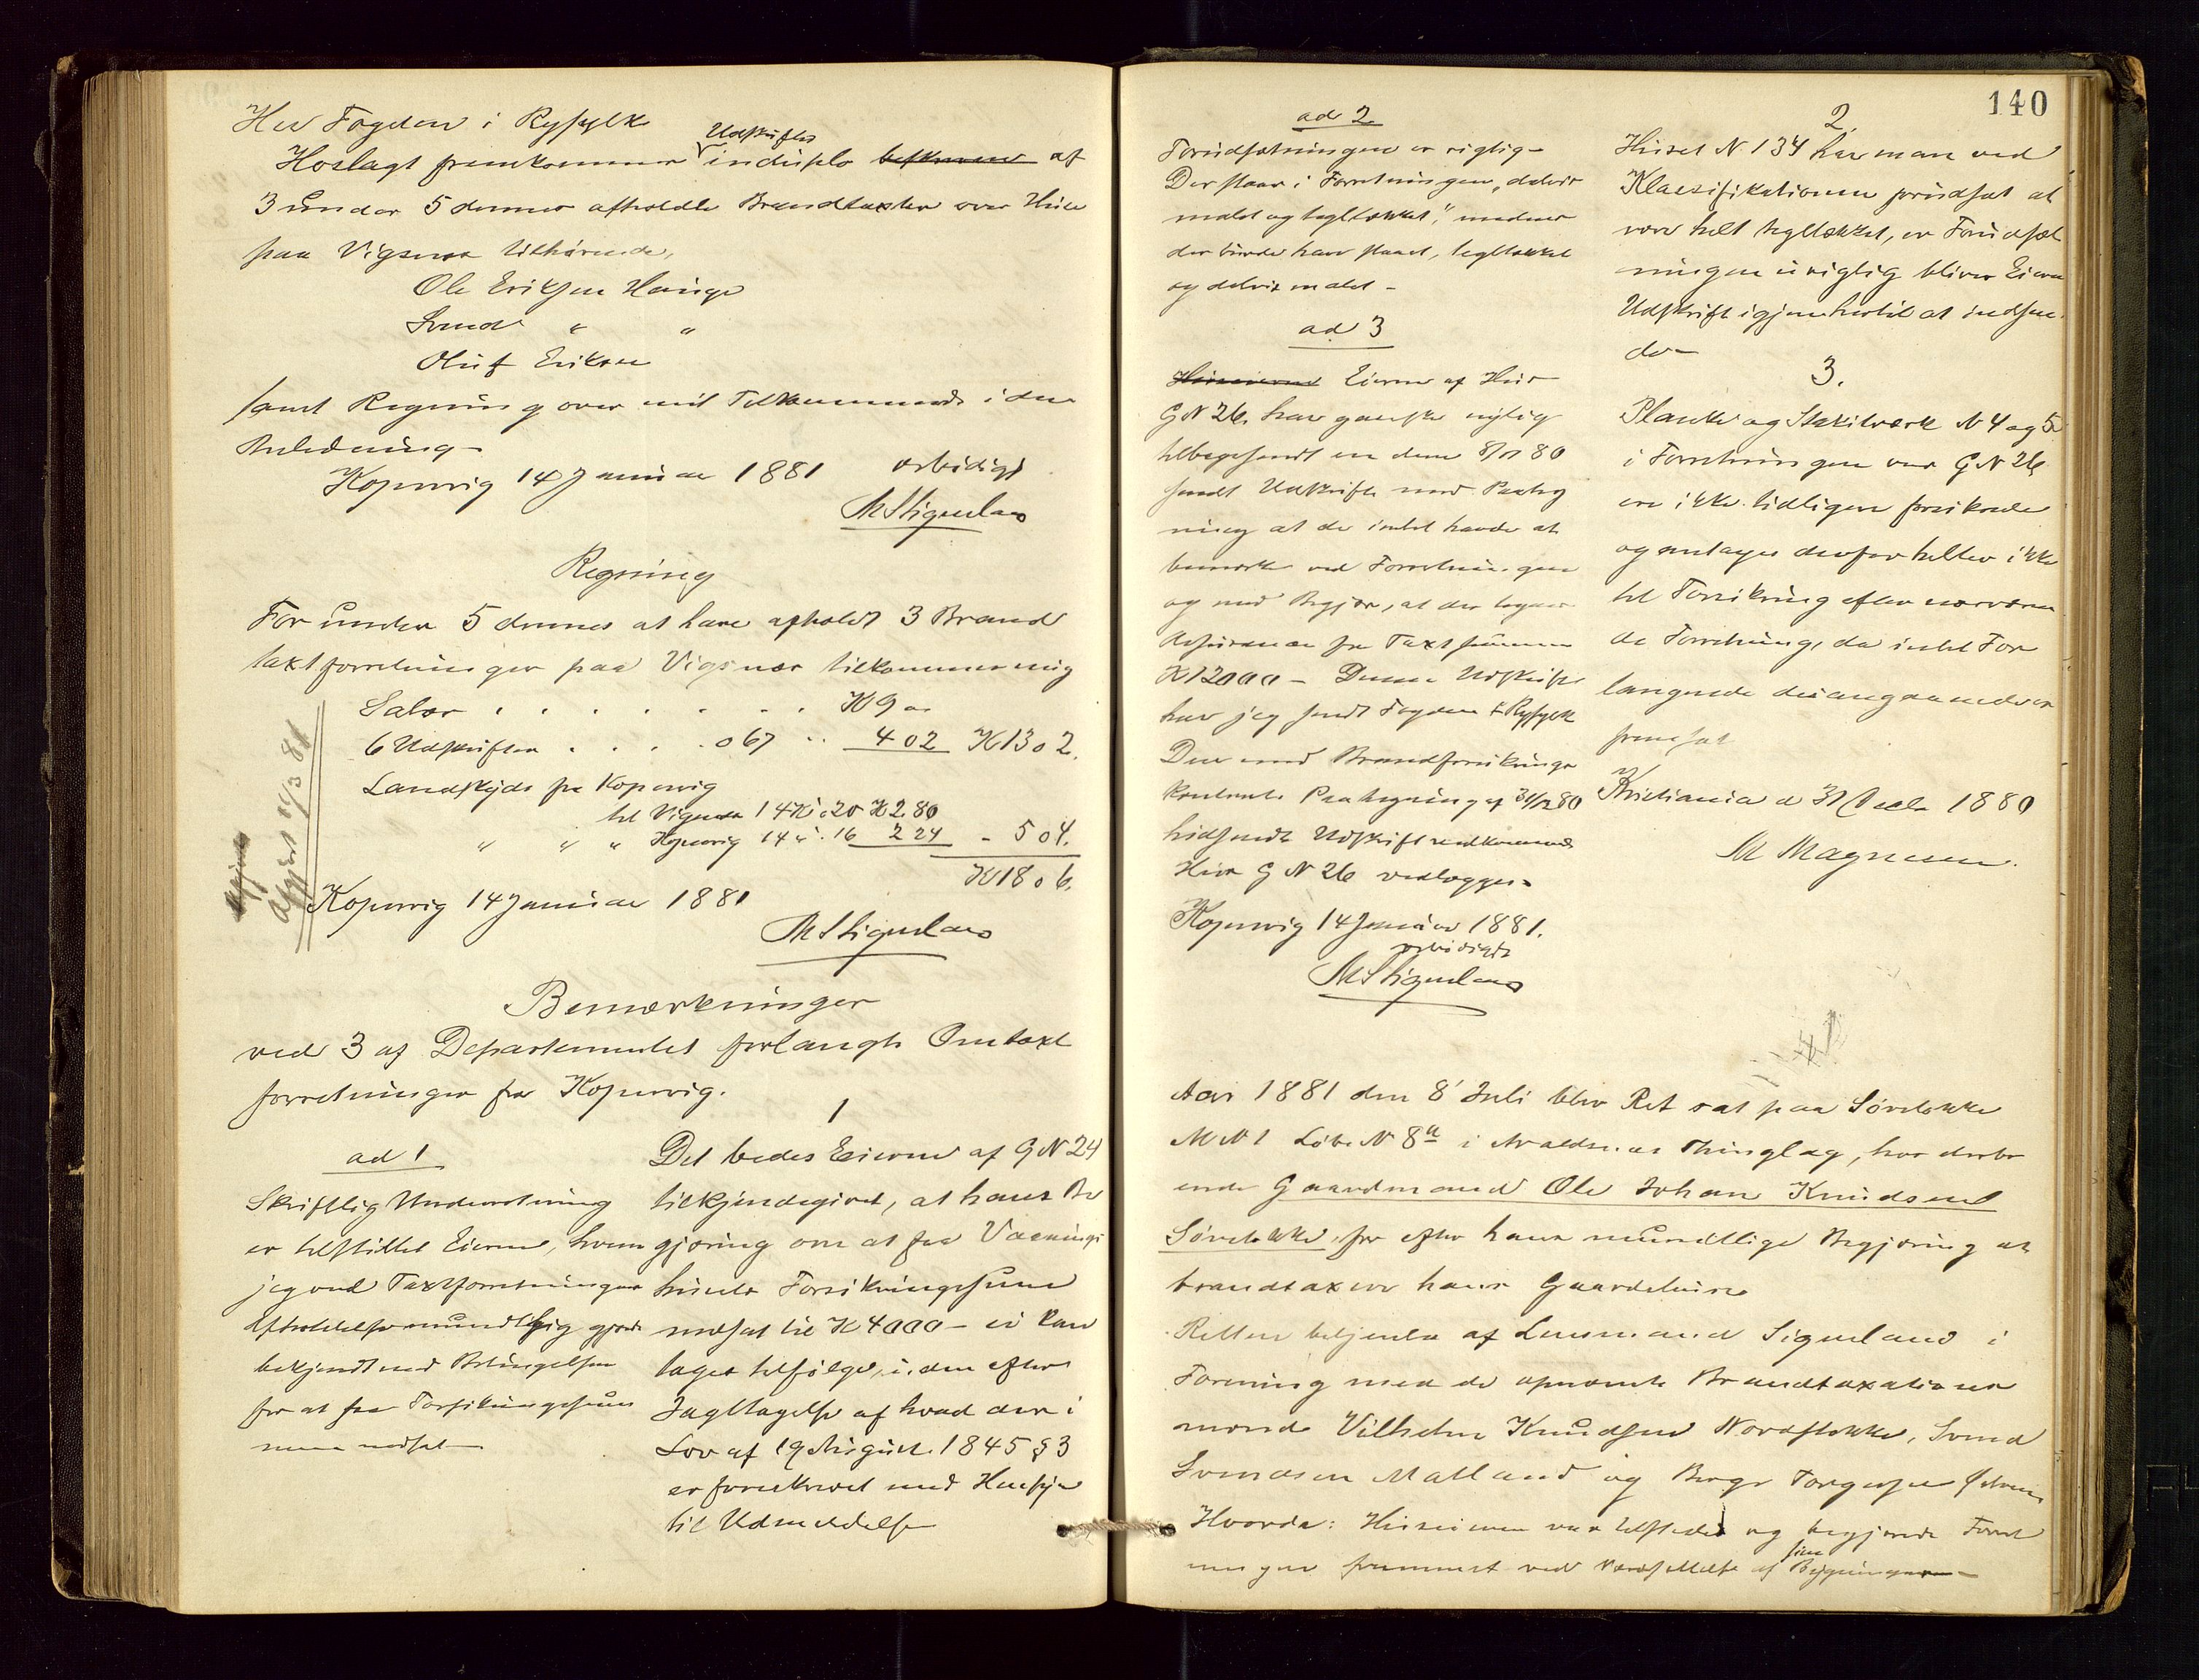 Her Fogden i Ryfylke
Hoslagt fremkommer Udskrifter induplo af
3 under 5 dennes afholdte Brandtaxter over Huse
paa Vigsnæs tilhørende,
Ole Eriksen Hauge
Svend " "
Oluf Eriksen
samt Regning over mit Tilkommende i den
Anledning -
Kopervig 14 Januar 1881 ærbødigst
M Sigveland
Regning
For under 5 dennes at have afholdt 3 Brand
taxtforretninger paa Vigsnæs tilkommer mig
Salær . . . . . . . . K 9 "
6 Udskrifter . . . . 0 67 .. 4 02 K 13 02.
Landskyds fra Kopervig
til Vigsnæs 14 K. à 20 K 2.80
" " " Kopervig 14 " . 16 2 24 - 5 04.
K 18 06.
Afgjort 16/3 81
Kopervig 14 Januar 1881
M Sigveland
Bemærkninger
ved 3 af Departementet forlangte Omtaxt
forretninger fra Kopervig.
ad 1
Skriftlig Underretning
er tilstillet Eieren, hvem
jeg ved Taxtforretningens
Afholdelse mundtlig gjorde
bekjendt med Betingelsen
for at faa Forsikringssum
men nedsat -
1
Det bedes Eieren af G N 24
tilkjendegivet, at hans Be
gjæring om at faa Vaanings
husets Forsikringssum
nedsat til K 4000 - ei kan
tages tilfølge, uden efter
Iagttagelse af hvad der i
Lov af 19 August 1845 § 3
er foreskrevet med Hensyn
til Udmeldelse
140
ad 2
Forudsætningen er rigtig -
Der staar i Forretningen "delvis
malet og tegltækket", medens
der burde have staaet, tegltækket
og delvis malet -
ad 3
Eieren af Hus
G N 26. har ganske nylig
tilbagesendt en dem 8/11 80
sendt Udskrift med Paateg
ning at de intet havde at
bemærke ved Forretningen
og med Begjær, at der tegnes
Assurance for Taxtsummen
K 12000 - Denne Udskrift
har jeg sendt Fogden i Ryfylke
Den med Brandforsikrings
kontorets Paategning af 31/12 80
hidsendte Udskrift vedkommende
Hus G N 26 vedlægges.
Kopervig 14 Januar 1881.
ærbødigst
M Sigveland
2.
Huset N. 134 har man ved
Klassifikationen forudsat at
være helt tegltækket, er Forudsæt
ningen urigtig bliver Eierens
Udskrift igjen hertil at indsen
de -
3.
Planke og Stakitværk N 4 og 5
i Forretningen over G N 26
ere ikke tidligere forsikrede
og antages derfor heller ikke
til Forsikring efter nærværen
de Forretning, da intet For
langende desangaaende er
fremsat
Kristiania d 31 Decbr 1880
M Magnesen.
Aar 1881 den 8' Juli blev Ret sat paa Sørstokke
M N 1 Løbe N 8a i Avaldsnæs Thinglag, hos derbo
ende Gaardmand Ole Johan Knudsen
Sørstokke, for efter hans mundtlige Begjæring at
brandtaxere hans Gaardshuse
Retten betjentes af Lensmand Sigveland i
Forening med de opnævnte Brandtaxations
mænd Vilhelm Knudsen Nordstokke, Svend
Svendsen Matland og Børge Torgersen
Hvorda: Huseieren var tilstede og begjærede Forret
ningen fremmet ved Værdsættelse af sine Bygninger -